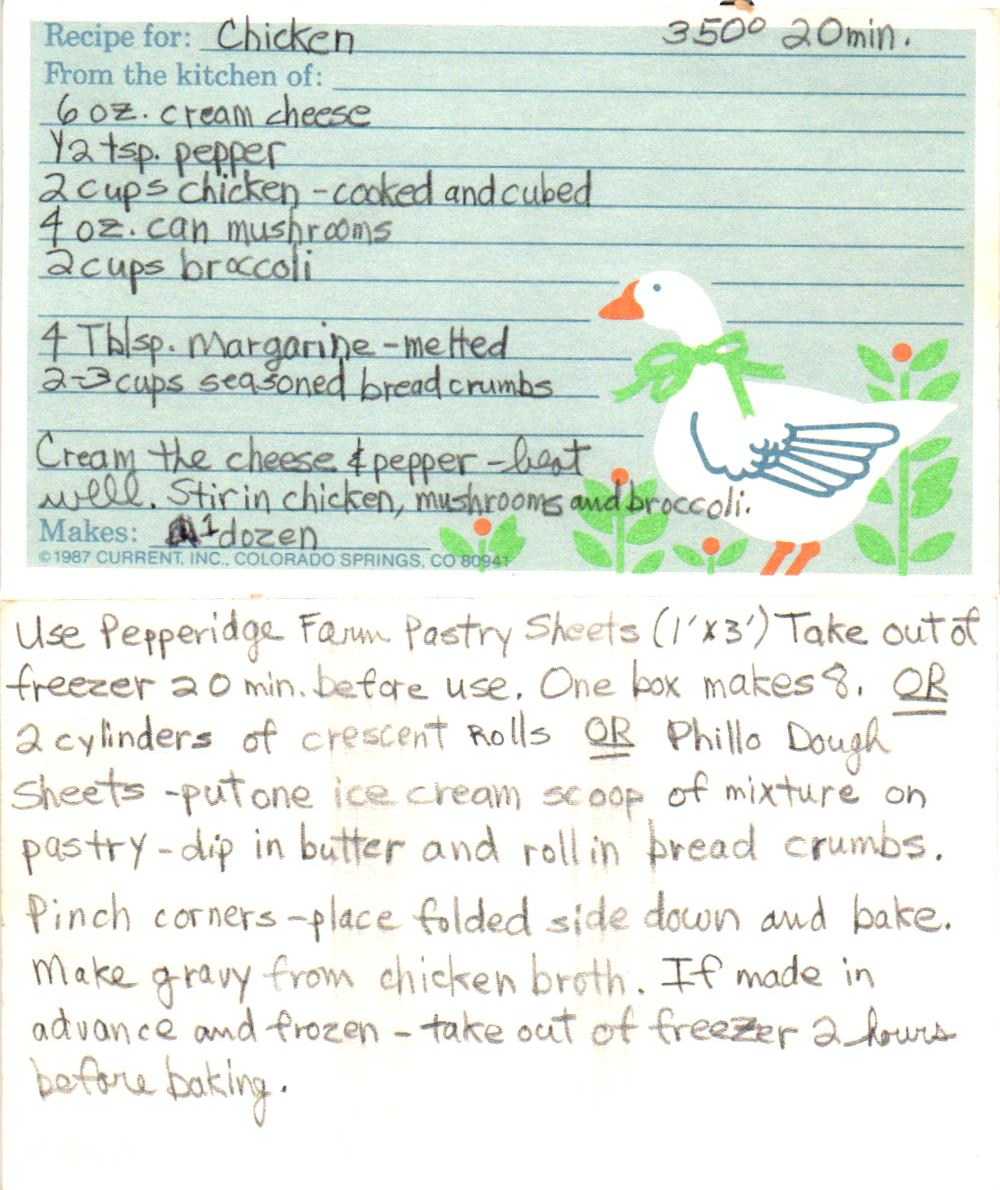 Recipe for: Chicken 350° 20 min.
From the kitchen of:
6 oz. cream cheese
1/2 tsp. pepper
2 cups chicken - cooked and cubed
4 oz. can mushrooms
2 cups broccoli
4 Tblsp. Margarine - melted
2-3 cups seasoned bread crumbs
Cream the cheese & pepper - beat
well. Stir in chicken, mushrooms and broccoli.
Makes: 1 dozen
©1987 CURRENT, INC., COLORADO SPRINGS, CO 80941
Use Pepperidge Farm Pastry Sheets (1'x3') Take out of
freezer 20 min. before use. One box makes 8. OR
2 cylinders of crescent Rolls OR Phillo Dough
Sheets - put one ice cream scoop of mixture on
pastry - dip in butter and roll in bread crumbs.
Pinch corners - place folded side down and bake.
Make gravy from chicken broth. If made in
advance and frozen - take out of freezer 2 hours
before baking.